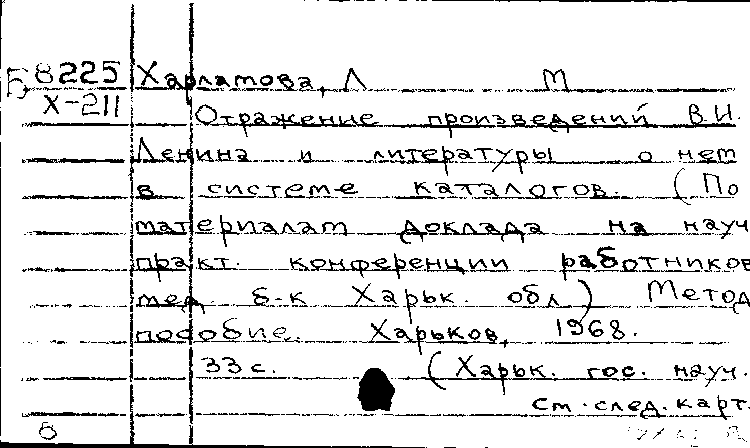 Б 8225 Харламова, Л М
Х-211
Отражение произведений В.И.
Ленина и литературы о нем
в системе каталогов. (По
материалам доклада на науч
практ. конференции работников
мед. б-к Харьк. обл) Метод
пособие. Харьков, 1968.
33 с. (Харьк. гос. науч.
См. след. карт.
б